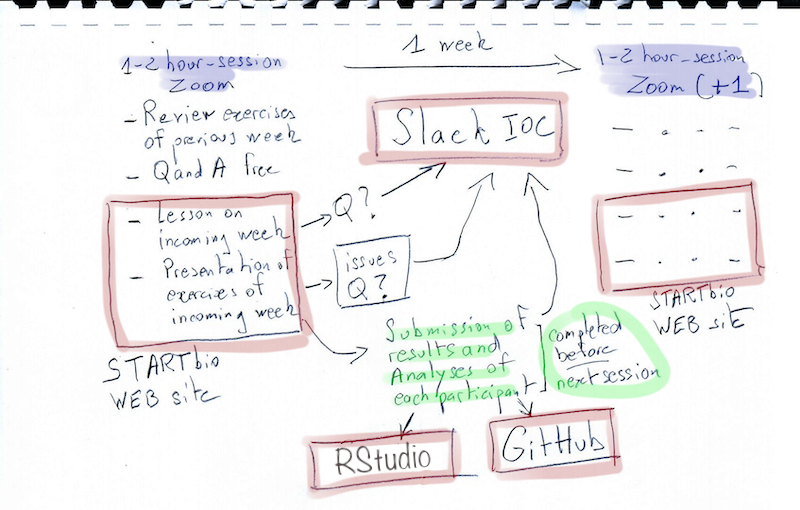 1-2 hour-session
Zoom
- Review exercises
of previous week
- Q and A free
- Lesson on
incoming week
- Presentation of
exercises of
incoming week
STARTbio
WEB site
1 week
Slack IOC
Q?
issues
Q?
Submission of
results and
Analyses of
each participant
completed
before
next session
RStudio
GitHub
1-2 hour-session
Zoom (+1)
STARTbio
WEB site